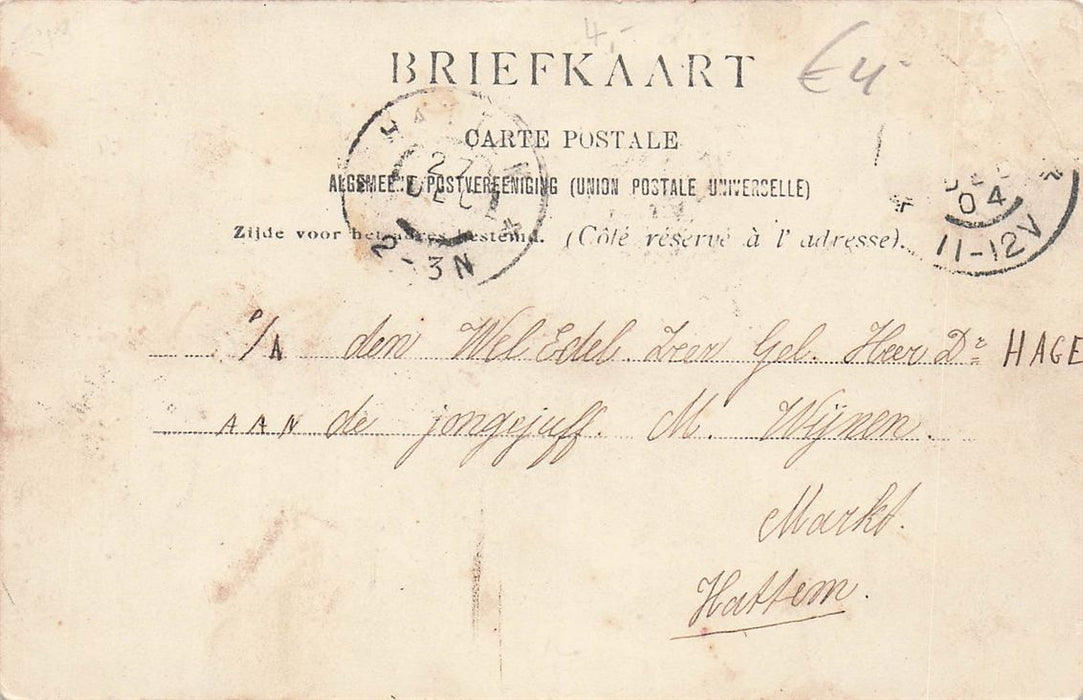 4,-
BRIEFKAART
€ 4-
CARTE POSTALE
ALGEMEENE POSTVEREENIGING (UNION POSTALE UNIVERSELLE)
Zijde voor het adres bestemd. (Côté réservé à l'adresse).
HATTEM
27
DEC
2-3N
04
11-12V
P/A den Wel Edel Zeer Gel. Heer Dr HAGE
AAN de jongejuff. M. Wijnen.
Markt.
Hattem.